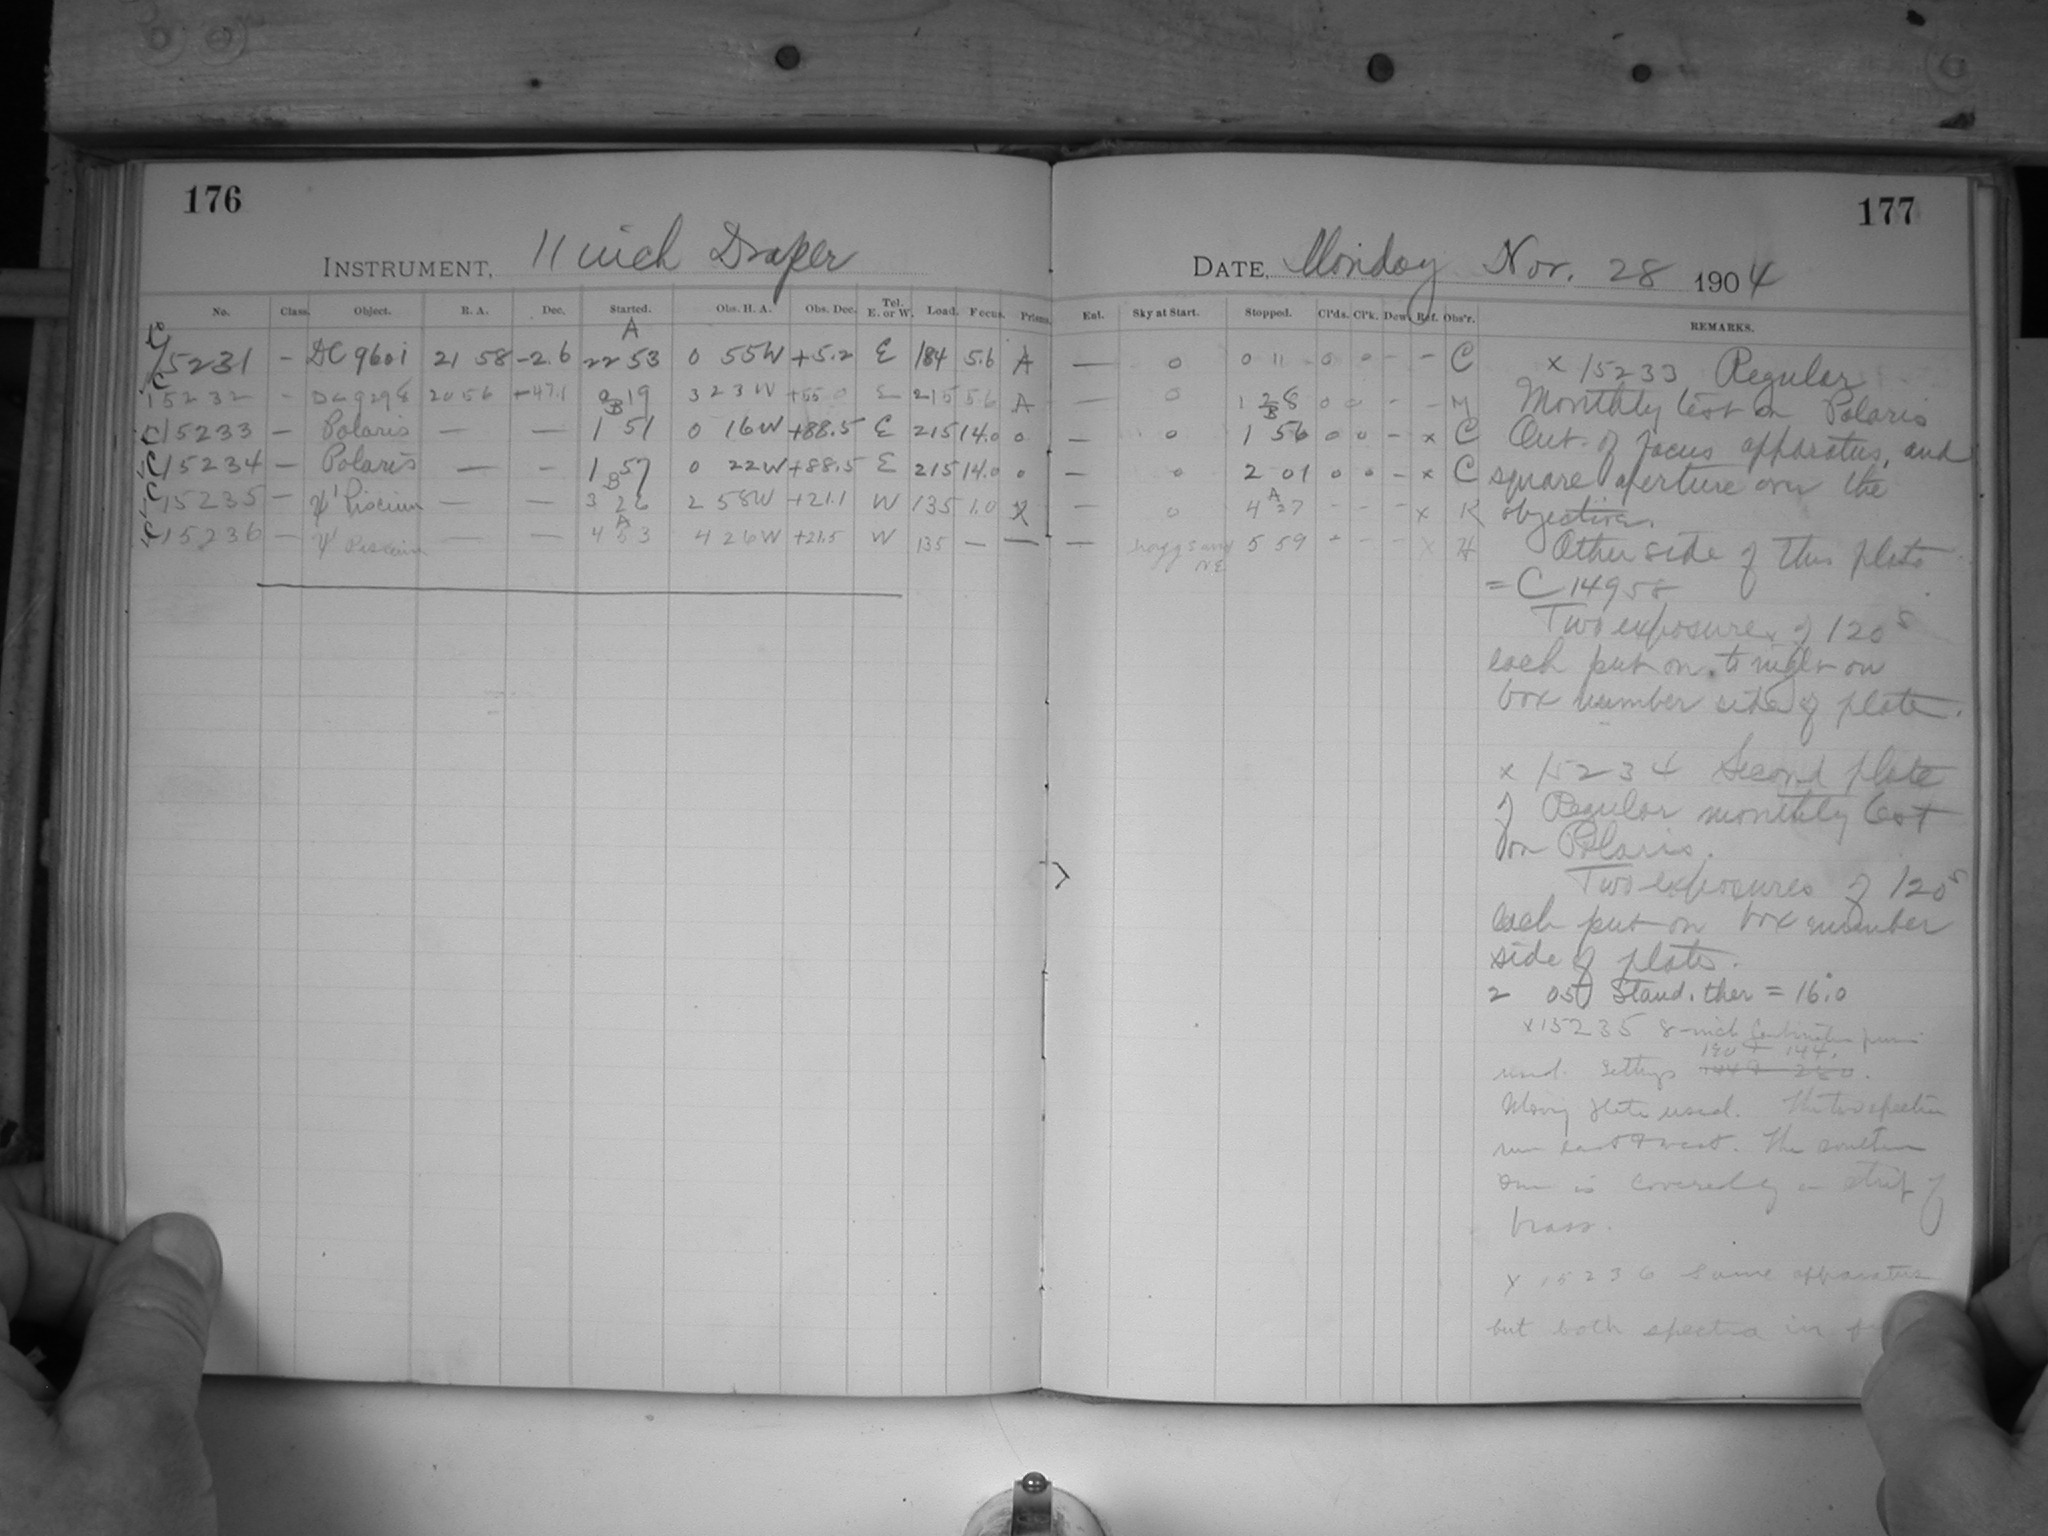 176
177
INSTRUMENT, 11 inch Draper
DATE, Monday Nov. 28 1904
No. Class. Object. R. A. Dec. Started. Obs. H. A. Obs. Dec. Tel. E. or W. Load. Focus. Prisms. Enl. Sky at Start. Stopped. Cl'ds. Cl'k. Dew. Ref. Obs'r. REMARKS.
A
C 15231 — DC 9601 21 58 -2.6 22 53 0 55W +5.2 E 184 5.6 A — 0 0 11 0 0 - - C
C 15232 - DC 9298 20 56 +47.1 0 19 3 23W +55 0 E 215 5.6 A — 0 1 28 0 0 - - M
B B
C 15233 — Polaris — — 1 51 0 16W +88.5 E 215 14.0 0 — 0 1 56 0 0 - x C
C 15234 — Polaris — — 1 57 0 22W +88.5 E 215 14.0 0 — 0 2 01 0 0 - x C
B A
C 15235 — ψ' Piscium — — 3 26 2 58W +21.1 W 135 1.0 — 0 4 27 - - - x K
A
C 15236 — ψ' Piscium — — 4 53 4 26W +21.5 W 135 — — — NE 5 59 - - - x H
x 15233 Regular
Monthly test on Polaris
Out of focus apparatus, and
square aperture over the
objective.
Other side of this plate
= C 14958
Two exposures of 120s
each put on to night on
box number side of plate.
x 15234 Second plate
of Regular monthly test
on Polaris.
Two exposures of 120s
each put on box number
side of plate.
2 05 Stand. ther = 16.0
x 15235 8-inch
190 + 144.
used. Settings
Moving plate used. The two spectra
run east & west. The southern
one is covered by a strip of
brass.
x 15236 Same apparatus
but both spectra in